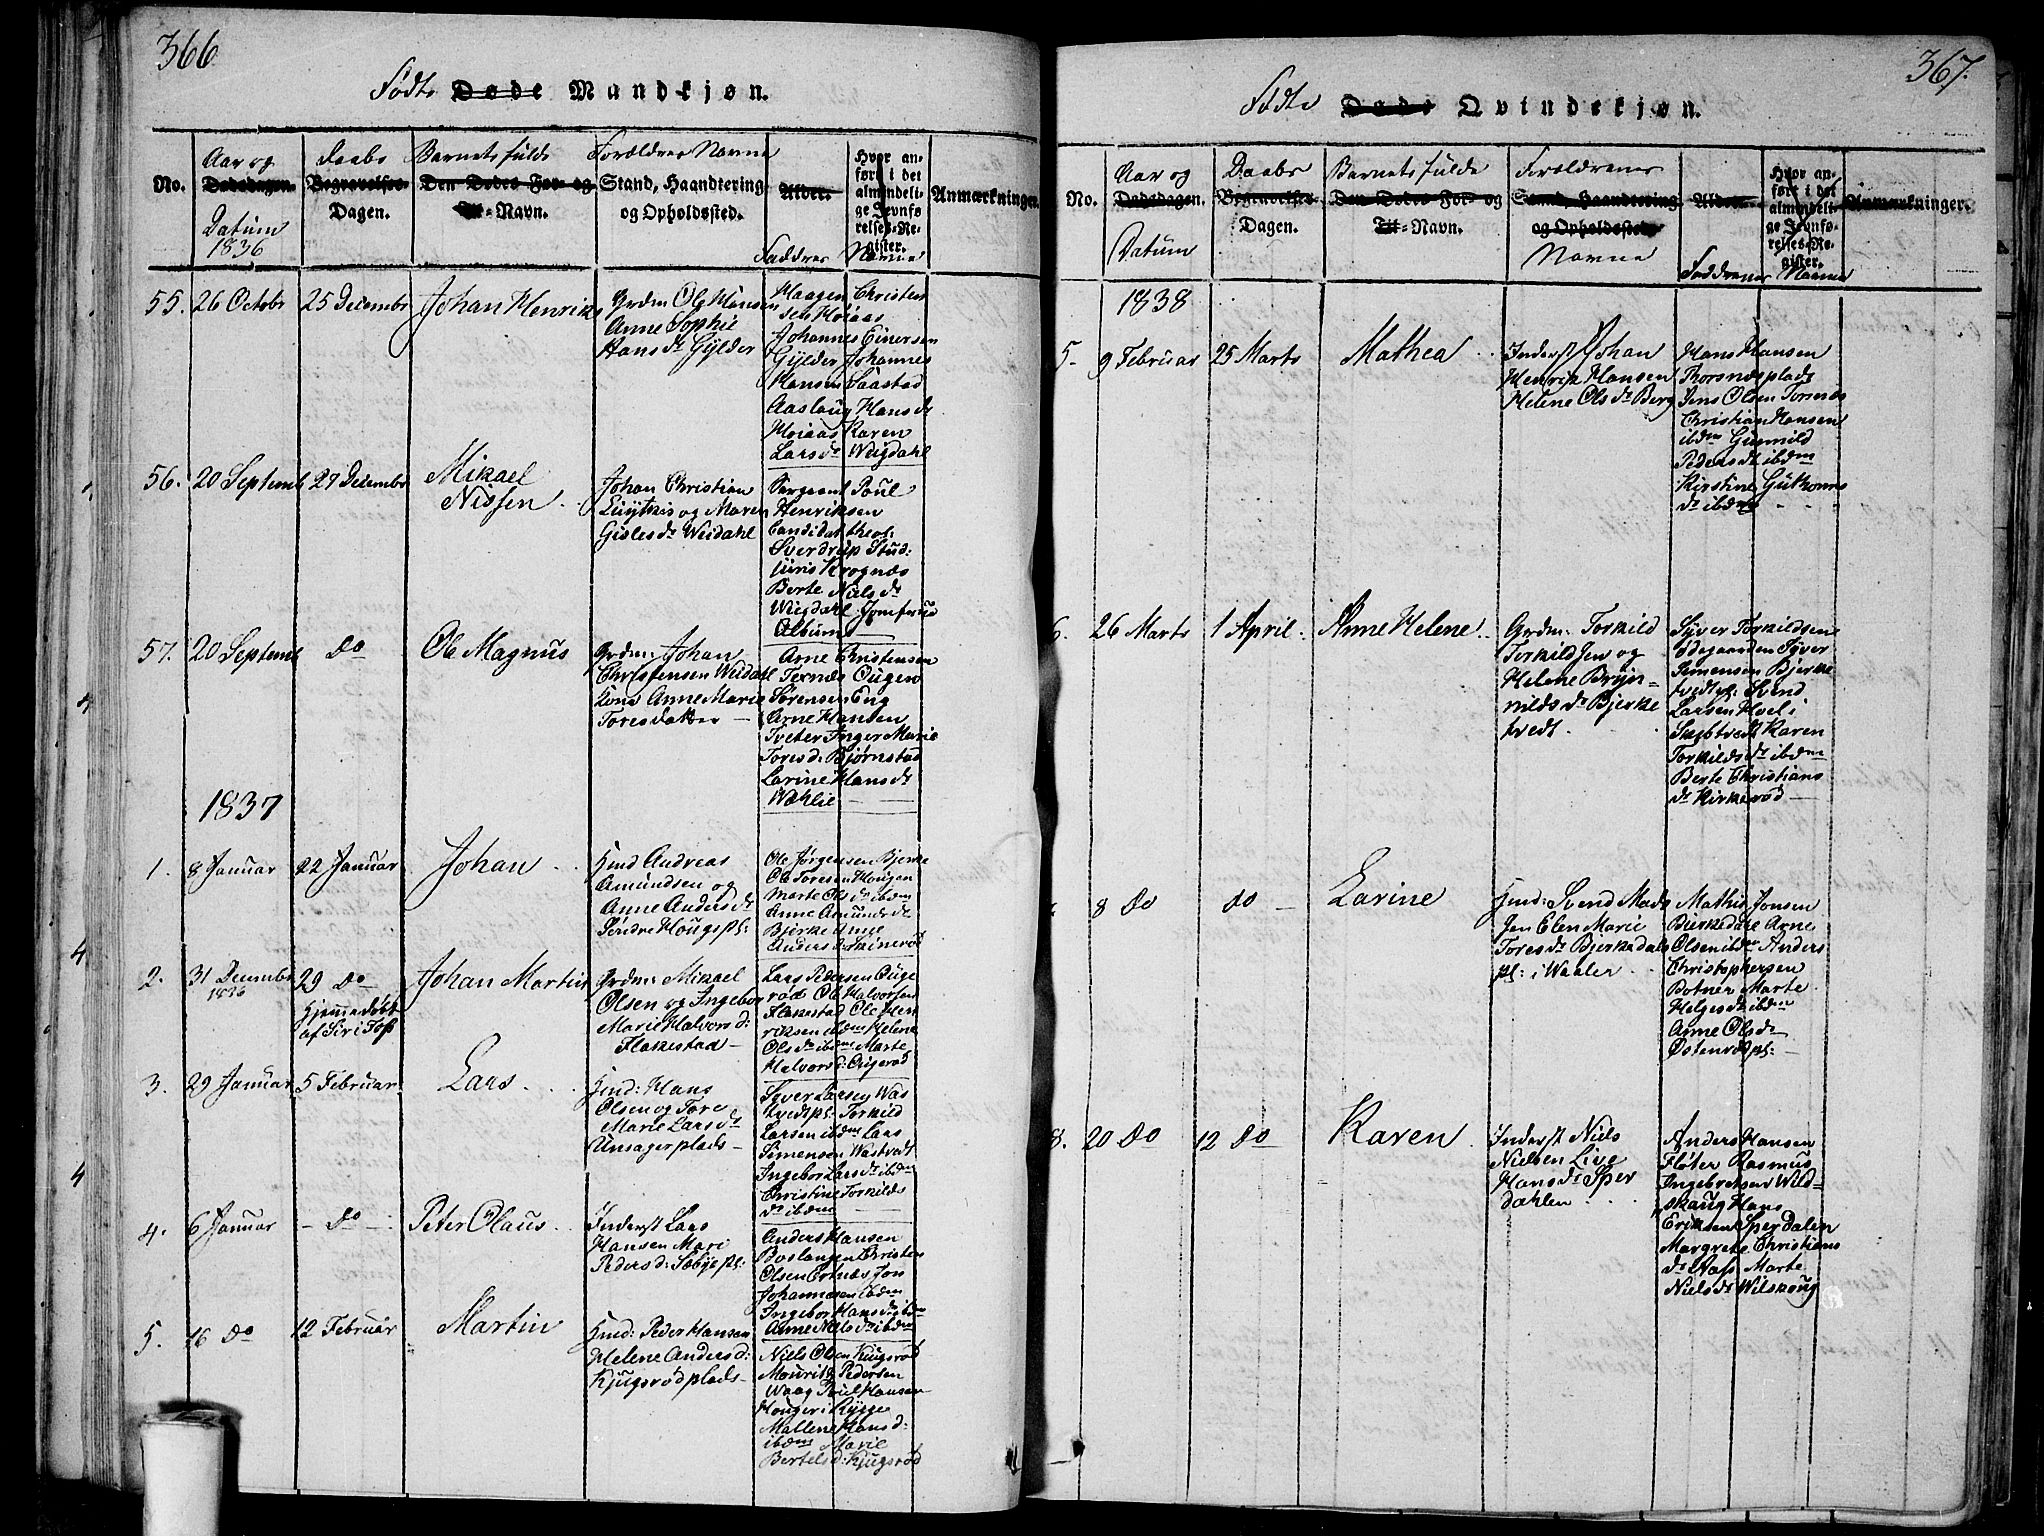 366
Fødte Døde Mandkjøn.
No.
Aar og
Dødsdagen.
Datum
1836
Daabs
Begravelses-
Dagen.
Barnets fulde
Den Dødes For- og
Til-Navn.
Forældres Navne
Stand, Haandtering
og Opholdssted.
Alder.
Hvor an-
ført i det
almindeli-
ge Jevnfø
relses-Re-
gister.
Faddres Navne
Anmærkninger.
55. 26 Octobr 25 Decembr Johan Henrik
Grdm: Ole Hansen
Anne Sophie
Hans dr Gylder
Haagen Christen
sen Moiaas
Johannes Einersen
Gylder Johannes
Hansen Saastad
Aaslaug Hans dr
Moiaas Karen
Lars dr Wiigdahl
56. 20 Septemb 27 Decembr Mikael
Nissen
Johan Christian
Luytkis og Maren
Gisles dr Weidahl
Sargeant Poul
Henriksen
Candidat theol:
Sverdrup Stud:
juris Krognæs
Berte Niels dr
Wiigdahl Jomfru
Album
57. 20 Septemb do Ole Magnus
Grdm: Johan
Christensen Weidahl
Kone Anne Marie
Toresdatter
Arne Christensen
Texnæs Ougen
Sørensen Eng
Arne Hansen
Tveter Inger Marie
Tores d: Bjørnstad
Larine Hans dr
Wæhlie
1837
1. 8 Januar 22 Januar Johan
Hmd Andreas
Amundsen og
Anne Anders dr
Søndre Hougspl:
Ole Jørgensen Bjerke
Ole Toresen Hougen
Marte Ols dr ibdm
Anne Amunds dr
Bjerke Anne
Anders d: Skinerød
2. 31 Decembr
1836
29 Do
Hjemmedøbt
af Siri Toss
Johan Martin
Grdm: Mikael
Olsen og Ingebor
Marie Halvors d:
Flakestad
Lars Pedersen Ouge
rød Ole Halvorsen
Flakestad Ole Hen
riksen ibdm Helene
Ols dr ibdm Marte
Halvors d: Ougerød
3. 29 Januar 5 Februar Lars
Hmd: Hans
Olsen og Tore
Marie Lars dr
Unsagerplads
Syver Larsen Was
tvedtpl: Torkild
Larsen ibdm Lars
Simensen Wastvedt
Ingebor Lars dr ibdm
Christine Torkilds
dr ibdm
4. 6 Januar Do Peter Olaus
Inderst Lars
Hansen Mari
Peders d: Sæbyepl:
Anders Hansen
Boslangen Christen
Olsen Ertnæs Jon
Johannesen ibdm
Ingebor Hans dr ibdm
Anne Niels dr ibdm
5. 16 Do 12 Februar Martin
Hmd: Peder Hansen
Helene Anders d:
Kjugsrødplads
Niels Olsen Kjugsrød
Mourits Pedersen
Waag Poul Hansen
Houger i Rygge
Mallene Hans d:
ibdm Marie
Bertels d: Kjugsrød
367.
Fødte Døde Qvindekjøn.
No.
Aar og
Dødsdagen.
Datum
Daabs
Begravelses-
Dagen.
Barnets fulde
Den Dødes For- og
Til-Navn.
Forældrenes
Stand, Haandtering
og Opholdssted.
Navne
Alder.
Hvor an-
ført i det
almindeli-
ge Jevnfø-
relses-Re-
gister.
Faddrenes Navne
Anmærkninger.
1838
5. 9 Februar 25 Marts Mathea
Inderst Johan
Henrik Hansen
Helene Ols dr Berg
Hans Hansen
Thorsnæsplads
Jens Olsen Torsnæs
Christian Hansen
ibdm Gunnild
Peders dr ibdm
Kirstine Gutkorms
dr ibdm
6. 26 Marts 1 April Anne Helene
Grdm: Torkild
Torkildsen og
Helene Bryn-
nilds dr Bjerke
tvedt
Syver Torkildsen
Ødegaarden Syver
Simensen Bjerke
tvedtpl: Svend
Larsen Hvel i
Skibtvedt Karen
Torkilds dr ibdm
Berte Christians
dr Kirkerød
8 Do do Larine
Hmd: Svend Mads
sen Elen Marie
Tores dr Bjerkedals
pl: i Waaler
Mathis Jonsen
Bjerkedal Arne
Olsen ibdm Anders
Christophersen
Botner Marte
Helges dr ibdm
Anne Ols dr
Østenrødpl:
8. 20 Do 12 Do Karen
Inderst Niels
Nielsen Live
Hans dr Sper
dahlen
Anders Hansen
Fløter Rasmus
Ingebretsen Wild-
skaug Hans
Eriksen Sperdalen
Margrete Christians
dr Nafs Marte
Niels dr Wilskoug